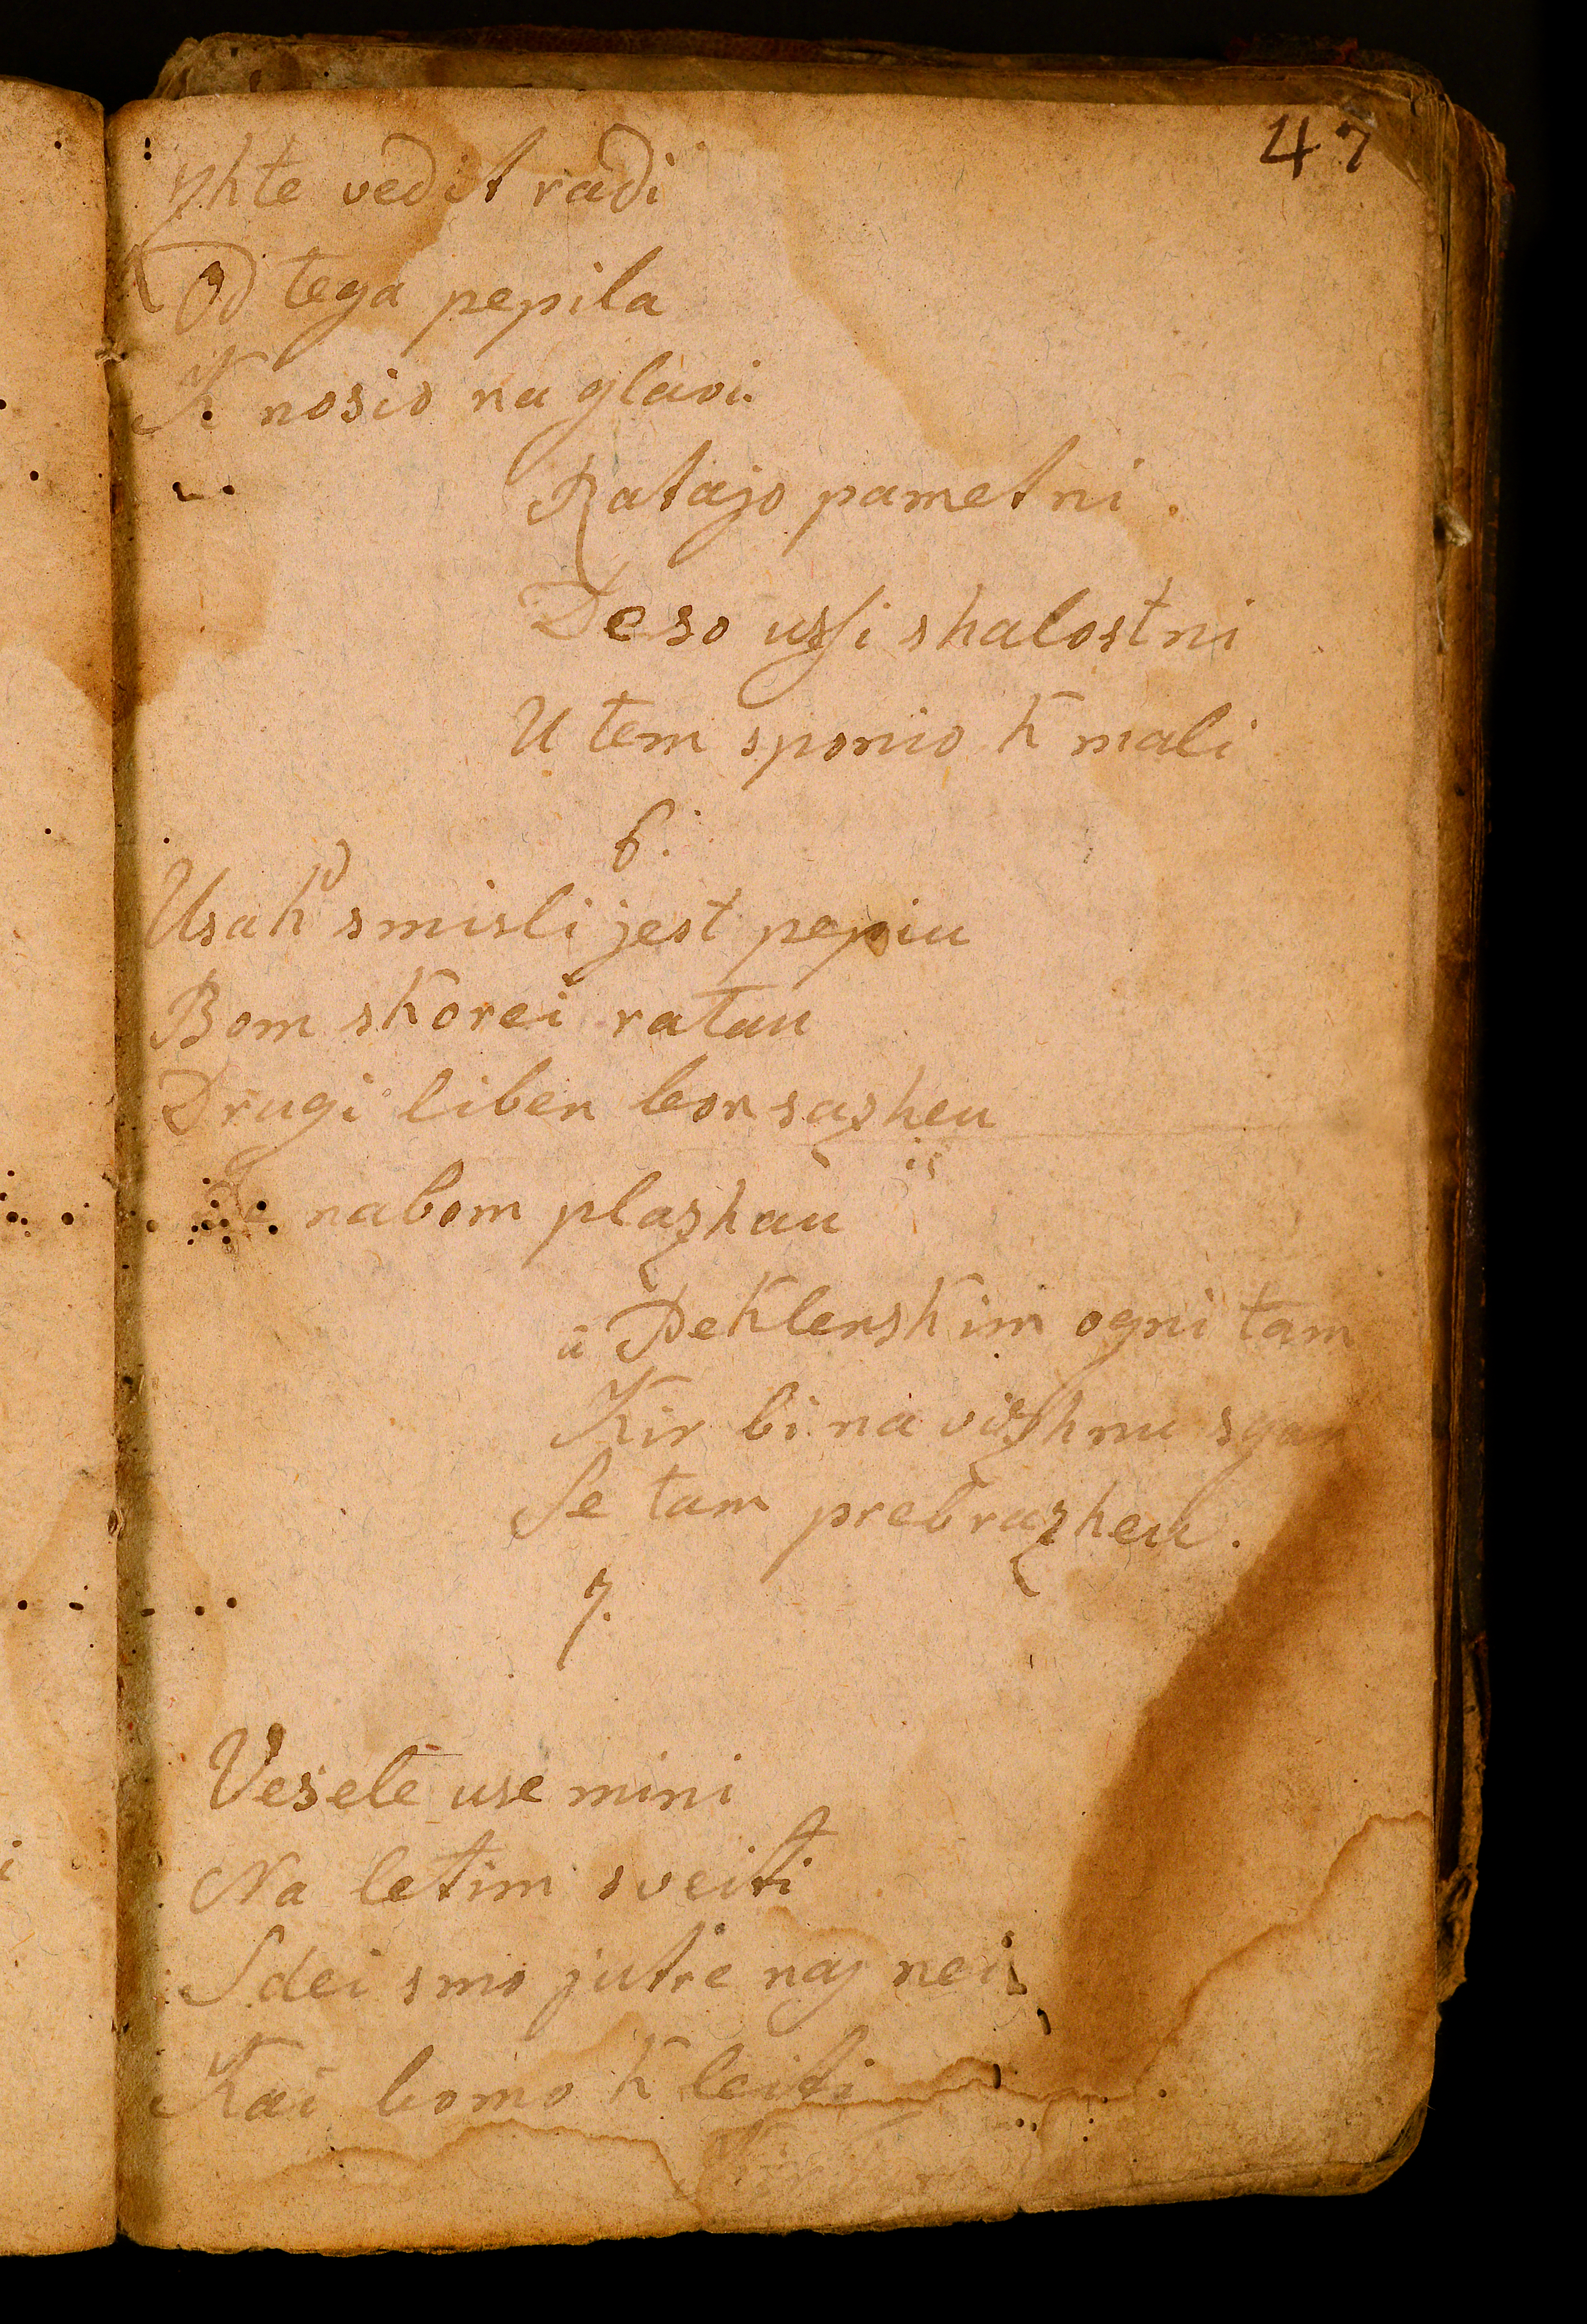 47
zhte vedit radi
Od tega pepila
K nosio na glavi.
Ratajo pametni.
De so ussi shalostni
U tem sponio k mali
6.
Usak smisli jest pepiu
Bom skorei ratau
Drugi liben bon sazheu
nabom plazhau
u Peklenskim ogni tam
Kir bi na vizhnu
Se tam prebrazheu.
7.
Vesele use mini
Na letim sveiti
Sdei smo jutre naj nei
Kai bomo k leiti